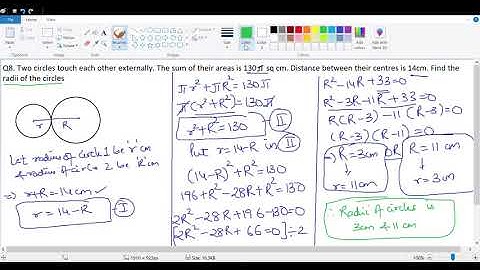 Q8. Two circles touch each other externally. The sum of their areas is 130π sq cm. Distance between their centres is 14cm. Find the
radii of the circles
r R
Let radius of circle 1 be 'r' cm
& radius of circle 2 be 'R' cm
⇒ r+R = 14 cm
r = 14-R I
πr²+πR² = 130π
π(r²+R²) = 130π
r²+R² = 130 II
Put r = 14-R in II
(14-R)²+R² = 130
196+R²-28R+R² = 130
2R²-28R+196-130=0
[2R²-28R+66=0]÷2
R²-14R+33=0
R²-3R-11R+33=0
R(R-3)-11(R-3)=0
(R-3)(R-11)=0
⇒ R=3cm OR R=11 cm
↓ ↓
r=11cm r=3cm
∴ Radii of circles is
3cm & 11 cm